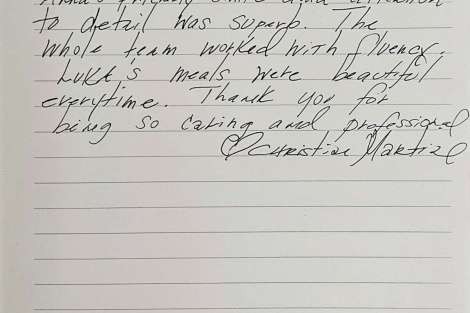 friendly smile and attention
to detail was superb. The
whole team worked with fluency.
Luka's meals were beautiful
everytime. Thank you for
being so caring and professional
♡ Christine